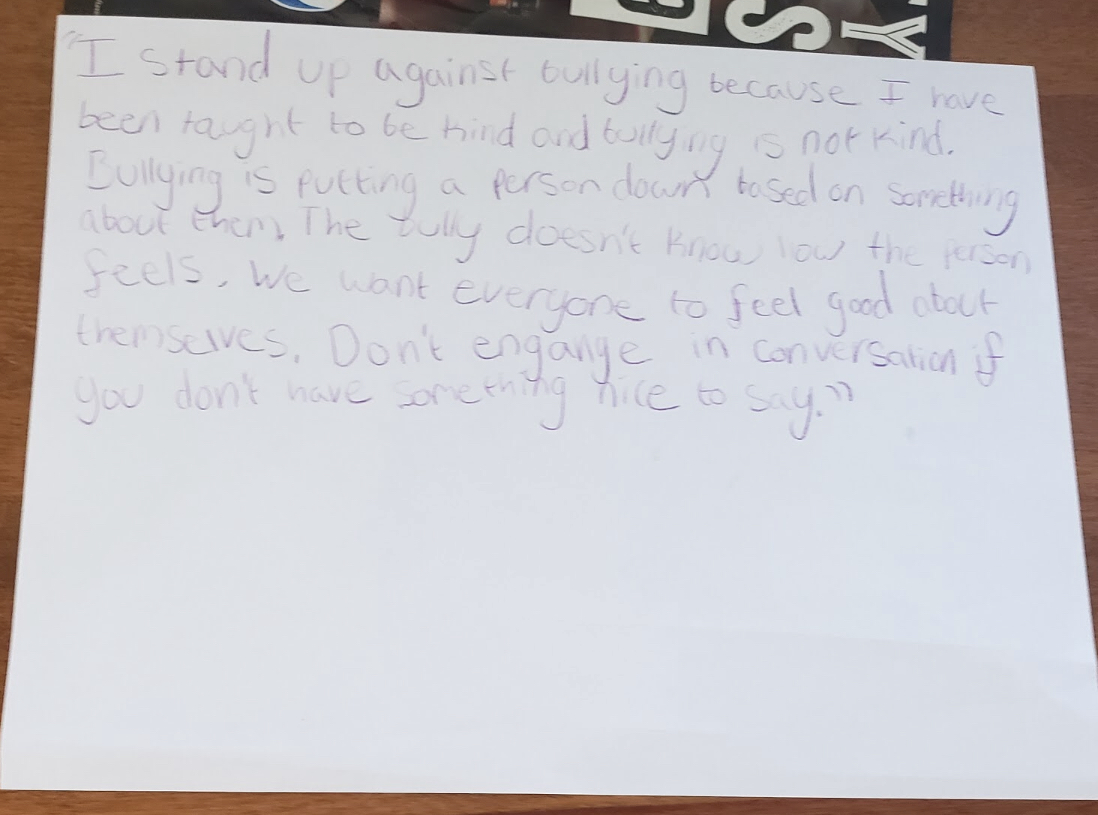 S
Y
"I stand up against bullying because I have
been taught to be kind and bullying is not kind.
Bullying is putting a person down based on something
about them. The bully doesn't know how the person
feels. We want everyone to feel good about
themselves. Don't engange in conversation if
you don't have something nice to say."